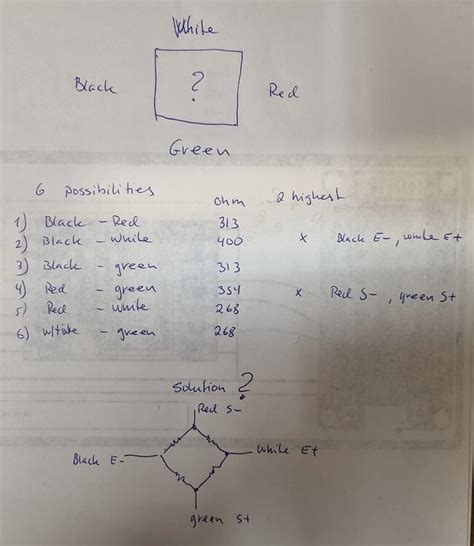 White
Black ? Red
Green
6 possibilities ohm 2 highest
1) Black - Red 313
2) Black - White 400 x Black E-, white E+
3) Black - green 313
4) Red - green 354 x Red S-, green S+
5) Red - White 268
6) White - green 268
Solution ?
Red S-
Black E- White E+
green S+